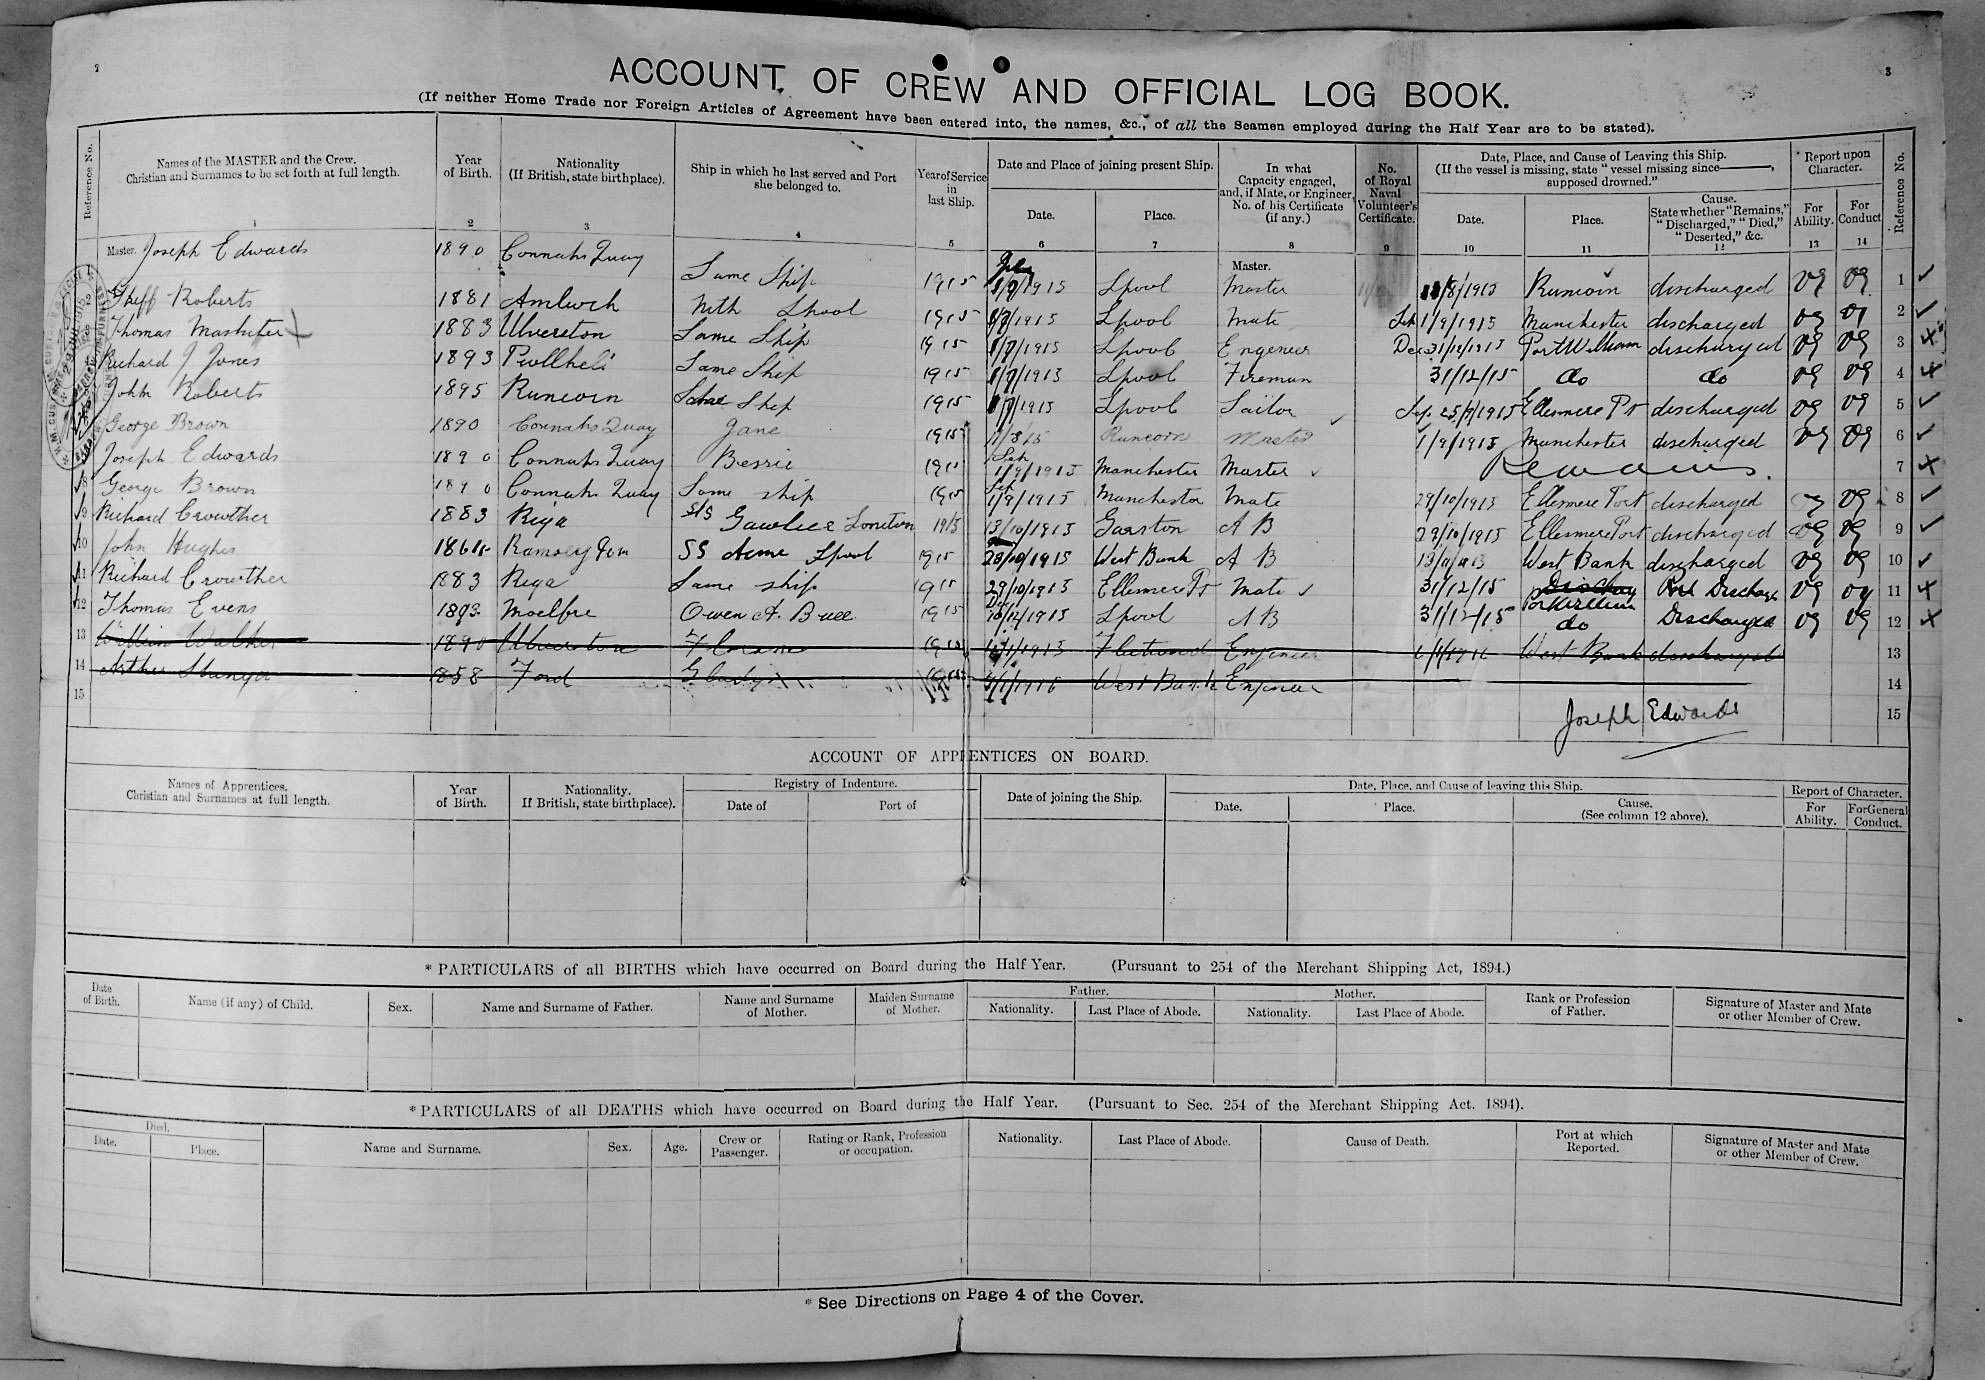 2
3
ACCOUNT OF CREW AND OFFICIAL LOG BOOK.
(If neither Home Trade nor Foreign Articles of Agreement have been entered into, the names, &c., of all the Seamen employed during the Half Year are to be stated).
Reference No. Names of the MASTER and the Crew. Christian and Surnames to be set forth at full length. Year of Birth. Nationality (If British, state birthplace). Ship in which he last served and Port she belonged to. Year of Service in last Ship. Date and Place of joining present Ship. Date. Place. In what Capacity engaged, and, if Mate, or Engineer, No. of his Certificate (if any.) No. of Royal Naval Volunteer's Certificate. Date, Place, and Cause of Leaving this Ship. (If the vessel is missing, state "vessel missing since———, supposed drowned." Date. Place. Cause. State whether "Remains," "Discharged," "Died," "Deserted," &c. Report upon Character. For Ability. For Conduct Reference No.
1 2 3 4 5 6 7 8 9 10 11 12 13 14
Master. Joseph Edwards 1890 Connahs Quay Same Ship 1915 July 1/7/1915 Lpool Master. Master 8/1915 Runcorn discharged VG VG 1
Roberts 1881 Amlwch Nith Lpool 1915 1915 Lpool Mate Sep 1/9/1915 Manchester discharged VG 2
Thomas 1883 Ulverston Same Ship 1915 1/7/1915 Lpool Engeneer Dec 31/12/1915 Port William discharged VG VG 3
Richard J Jones 1893 Pwllheli Same Ship 1915 1/7/1915 Lpool Fireman 31/12/15 do do VG VG 4
John Roberts 1895 Runcorn Same Ship 1915 1915 Lpool Sailor Sep. 25/9/1915 Ellesmere Pt discharged VG VG 5
George Brown 1890 Connahs Quay Jane 1915 Runcorn Master 1/9/1915 Manchester discharged VG VG 6
Joseph Edwards 1890 Connahs Quay Bessie 1915 Sep 1/9/1915 Manchester Master Remains. 7
8 George Brown 1890 Connahs Quay Same ship 1915 Sep 1/9/1915 Manchester Mate 29/10/1915 Ellesmere Port discharged VG 8
9 Richard Crowther 1883 Riga S/S London 1915 13/10/1915 Garston A B 29/10/1915 Ellesmere Port discharged VG VG 9
10 John Hughes Ramsey Iom SS Acme Lpool 1915 1915 West Bank A B West Bank discharged VG VG 10
11 Richard Crowther 1883 Riga Same ship 1915 29/10/1915 Ellesmere Pt Mate 31/12/15 Port William Discharge VG VG 11
12 Thomas Evens 1893 Moelfre Owen A. 1915 Dec 1915 Lpool A B 31/12/15 do Discharged VG VG 12
13 William Walker 1890 Ulverston 1915 Fleetwood Engineer West Bank discharged 13
14 Arthur 1858 Ford Gladys 1/1916 West Bank Engineer 14
15 Joseph Edwards 15
ACCOUNT OF APPRENTICES ON BOARD.
Names of Apprentices. Christian and Surnames at full length. Year of Birth. Nationality. If British, state birthplace). Registry of Indenture. Date of Port of Date of joining the Ship. Date, Place, and Cause of leaving this Ship. Date. Place. Cause. (See column 12 above). Report of Character. For Ability. For General Conduct.
* PARTICULARS of all BIRTHS which have occurred on Board during the Half Year. (Pursuant to 254 of the Merchant Shipping Act, 1894.)
Date of Birth. Name (if any) of Child. Sex. Name and Surname of Father. Name and Surname of Mother. Maiden Surname of Mother. Father. Nationality. Last Place of Abode. Mother. Nationality. Last Place of Abode. Rank or Profession of Father. Signature of Master and Mate or other Member of Crew.
* PARTICULARS of all DEATHS which have occurred on Board during the Half Year. (Pursuant to Sec. 254 of the Merchant Shipping Act. 1894).
Died. Date. Place. Name and Surname. Sex. Age. Crew or Passenger. Rating or Rank, Profession or occupation. Nationality. Last Place of Abode. Cause of Death. Port at which Reported. Signature of Master and Mate or other Member of Crew.
* See Directions on Page 4 of the Cover.